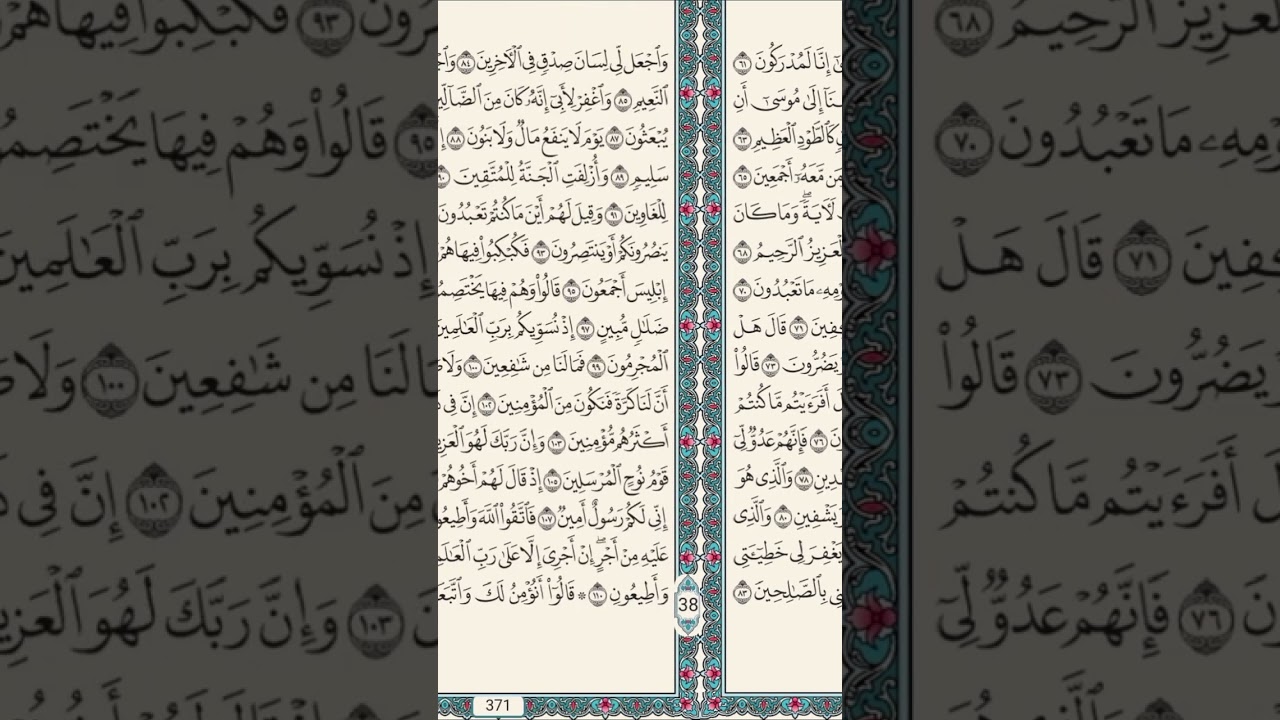 ىٰٓ إِنَّا لَمُدْرَكُونَ ٦١
نَآ إِلَىٰ مُوسَىٰٓ أَنِ
كَٱلطَّوْدِ ٱلْعَظِيمِ ٦٣
مَن مَّعَهُۥٓ أَجْمَعِينَ ٦٥
لَـَٔايَةًۖ وَمَا كَانَ
ٱلْعَزِيزُ ٱلرَّحِيمُ ٦٨
وْمِهِۦ مَا تَعْبُدُونَ ٧٠
كِفِينَ ٧١ قَالَ هَلْ
يَضُرُّونَ ٧٣ قَالُوا۟
لَ أَفَرَءَيْتُم مَّا كُنتُمْ
ونَ ٧٦ فَإِنَّهُمْ عَدُوٌّ لِّىٓ
دِينِ ٧٨ وَٱلَّذِى هُوَ
يَشْفِينِ ٨٠ وَٱلَّذِى
يَغْفِرَ لِى خَطِيٓـَٔتِى
نِى بِٱلصَّـٰلِحِينَ ٨٣
38
وَٱجْعَل لِّى لِسَانَ صِدْقٍ فِى ٱلْـَٔاخِرِينَ ٨٤ وَٱجْ
ٱلنَّعِيمِ ٨٥ وَٱغْفِرْ لِأَبِىٓ إِنَّهُۥ كَانَ مِنَ ٱلضَّآلِّي
يُبْعَثُونَ ٨٧ يَوْمَ لَا يَنفَعُ مَالٌ وَلَا بَنُونَ ٨٨ إِ
سَلِيمٍ ٨٩ وَأُزْلِفَتِ ٱلْجَنَّةُ لِلْمُتَّقِينَ ٩٠
لِلْغَاوِينَ ٩١ وَقِيلَ لَهُمْ أَيْنَ مَا كُنتُمْ تَعْبُدُونَ
يَنصُرُونَكُمْ أَوْ يَنتَصِرُونَ ٩٣ فَكُبْكِبُوا۟ فِيهَا هُمْ
إِبْلِيسَ أَجْمَعُونَ ٩٥ قَالُوا۟ وَهُمْ فِيهَا يَخْتَصِمُ
ضَلَـٰلٍ مُّبِينٍ ٩٧ إِذْ نُسَوِّيكُم بِرَبِّ ٱلْعَـٰلَمِينَ
ٱلْمُجْرِمُونَ ٩٩ فَمَا لَنَا مِن شَـٰفِعِينَ ١٠٠ وَلَا صَ
أَنَّ لَنَا كَرَّةً فَنَكُونَ مِنَ ٱلْمُؤْمِنِينَ ١٠٢ إِنَّ فِى ذَ
أَكْثَرُهُم مُّؤْمِنِينَ ١٠٣ وَإِنَّ رَبَّكَ لَهُوَ ٱلْعَزِي
قَوْمُ نُوحٍ ٱلْمُرْسَلِينَ ١٠٥ إِذْ قَالَ لَهُمْ أَخُوهُمْ
إِنِّى لَكُمْ رَسُولٌ أَمِينٌ ١٠٧ فَٱتَّقُوا۟ ٱللَّهَ وَأَطِيعُو
عَلَيْهِ مِنْ أَجْرٍۖ إِنْ أَجْرِىَ إِلَّا عَلَىٰ رَبِّ ٱلْعَـٰلَمِ
وَأَطِيعُونِ ١١٠ ۞ قَالُوٓا۟ أَنُؤْمِنُ لَكَ وَٱتَّبَعَ
371